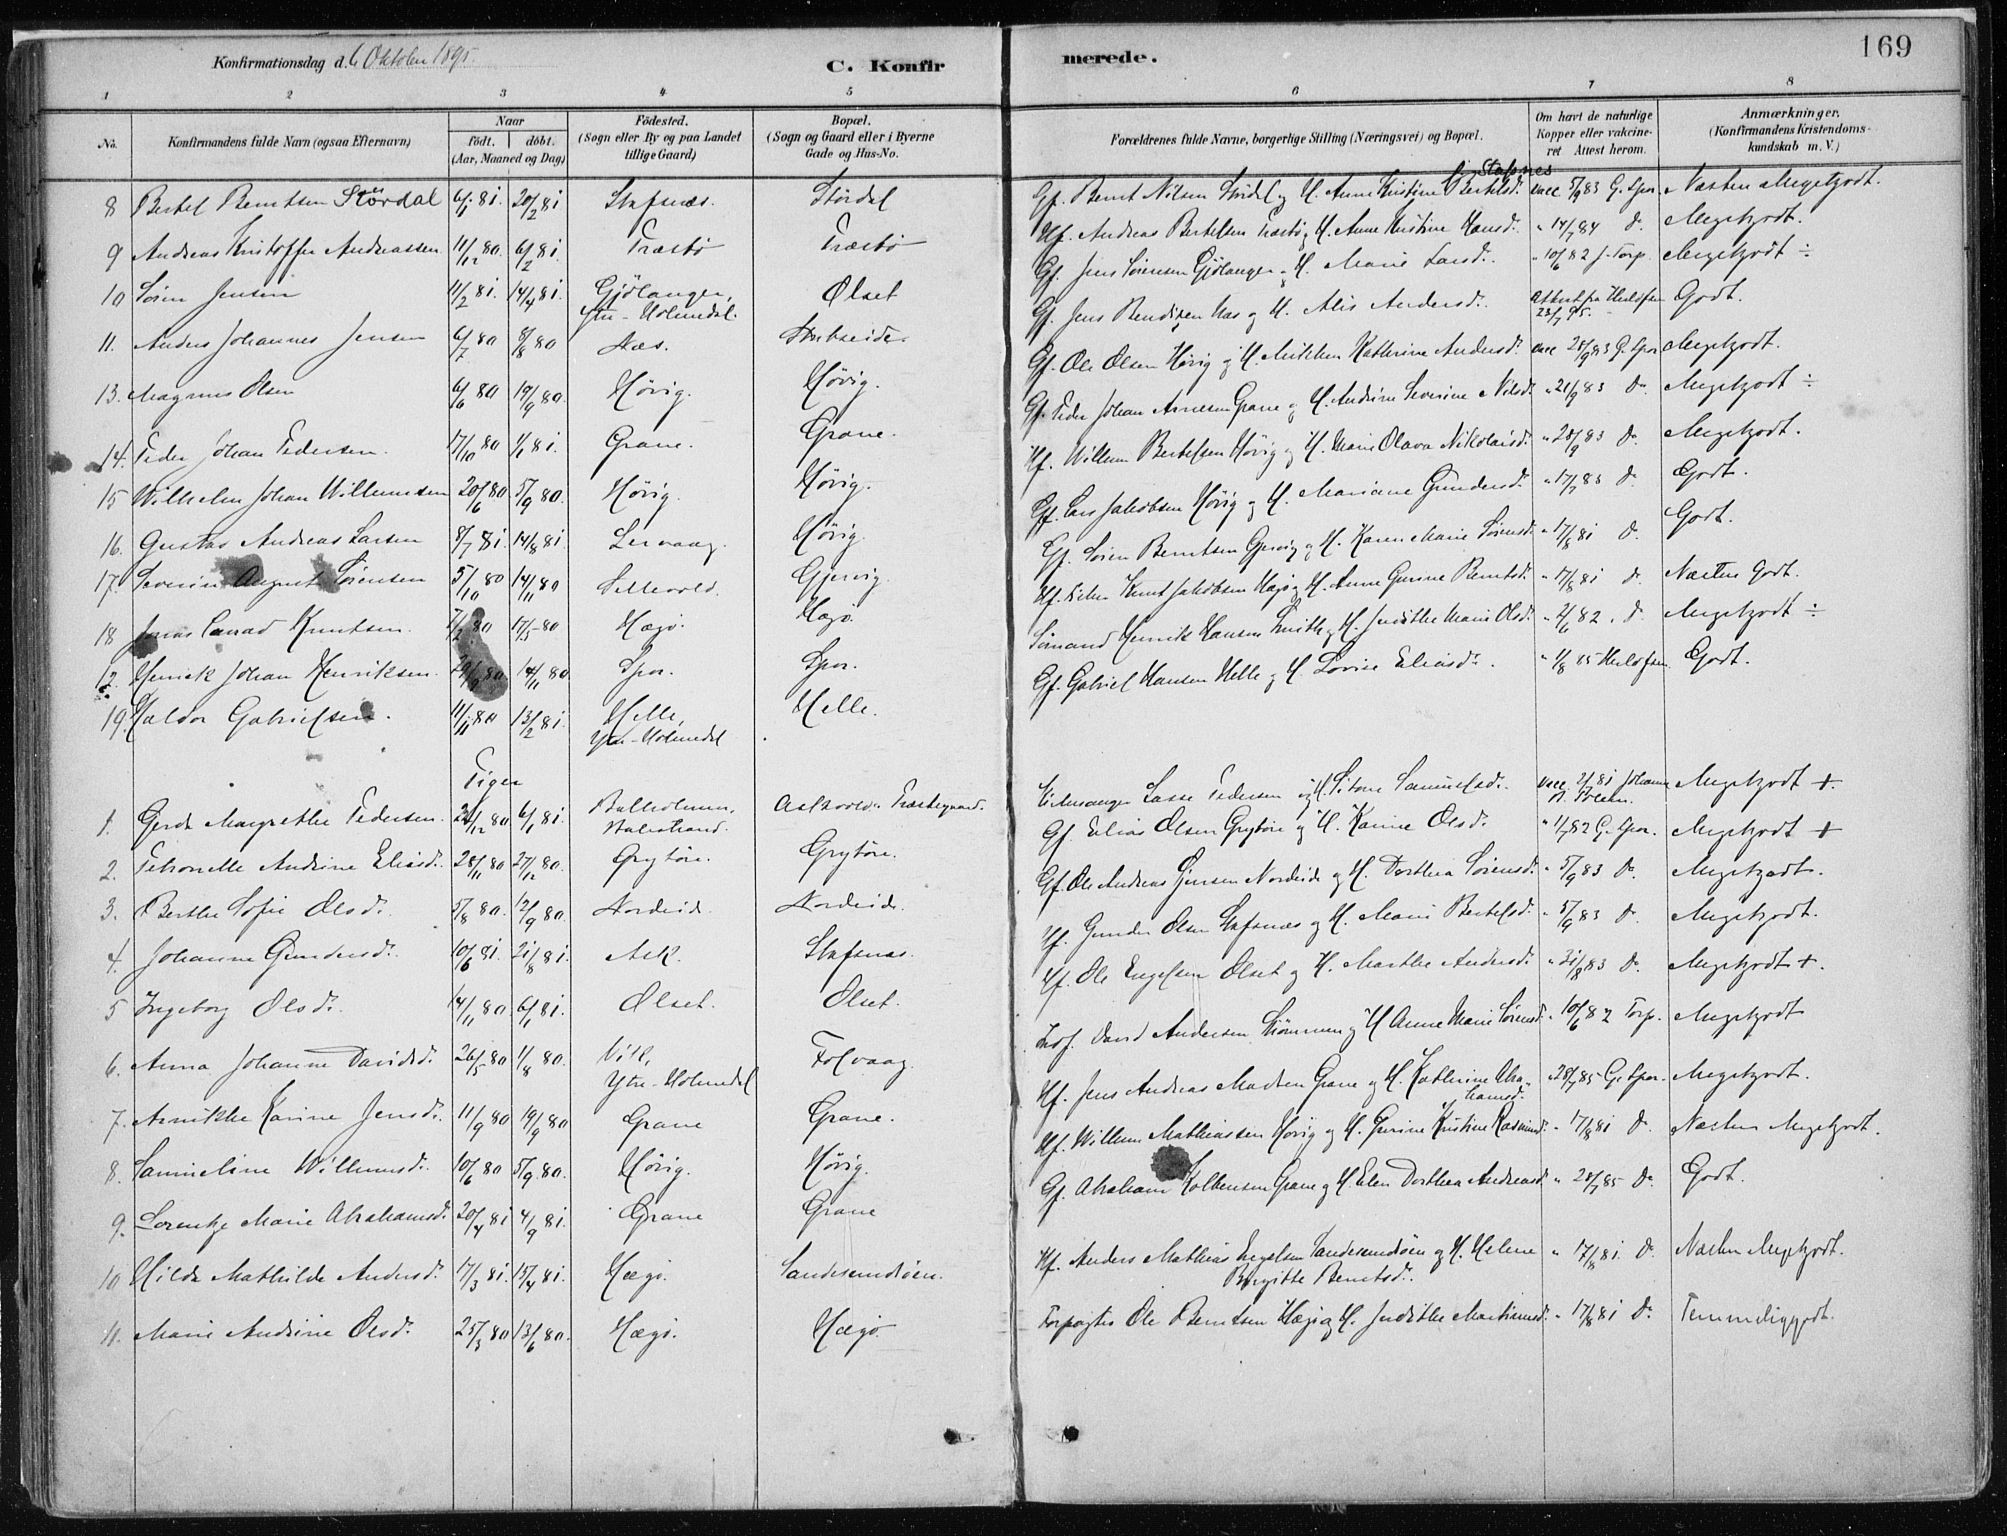 169
Konfirmationsdag d. 6 Oktober 1895.
C. Konfirmerede.
1 2 3 4 5 6 7 8
No. Konfirmandens fulde Navn (ogsaa Efternavn) Naar født. døbt. (Aar, Maaned og Dag) Fødested. (Sogn eller By og paa Landet tillige Gaard) Bopæl. (Sogn og Gaard eller i Byerne Gade og Hus-No. Forældrenes fulde Navne, borgerlige Stilling (Næringsvei) og Bopæl. Om havt de naturlige Kopper eller vakcineret Attest herom. Anmærkninger. (Konfirmandens Kristendomskundskab m. V.)
Stafsnes
8 Bertel Berntsen Stördal 6/1 81 20/2 81 Stafsnæs. Stördal Gf. Bernt Nilsen Stördal og H. Anne Kristine Bertelsd. vacc 5/9 83 G. Spor. Næsten Megetgodt.
9 Andreas Kristoffer Andreassen 11/12 80. 6/2 81. Træsbø Træsbø Hf. Andreas Bertelsen Træsbø og H. Anne Kristine Hansd. " 14/7 84 Do Megetgodt.
10 Sören Jensen 11/2 81. 14/4 81. Gjölanger, Ytr-Holmedal. Ölset Gf. Jens Sörensen Gjölanger og H. Marie Larsd. " 10/6 82 J. Torp. Megetgodt ÷
11. Anders Johannes Jensen 6/7 80 8/8 80 Næs. Gf. Jens Bendixen Næs og H. Alis Andersd. Attest fra Herlofsen 23/7 95. Godt.
13. Magnus Olsen 6/6 80 19/9 80. Hövig. Hövig. Gf. Ole Olsen Hövig og H. Mikkeline Kathrine Andersd. vacc 28/9 83 G. Spor Megetgodt.
14. Peder Johan Pedersen. 17/10 80 1/1 81. Grane. Grane. Gf. Peder Johan Arnesen Grane og H. Andrine Severine Nilsd. " 21/9 83 Do Megetgodt ÷
15 Wilhelm Johan Willumsen 20/6 80 5/9 80. Hövig. Hövig. Hf. Willum Bertelsen Hövig og H. Marie Olava Nikolaisd. " 28/9 83 Do Megetgodt.
16. Gustav Andreas Larsen 8/7 81. 14/8 81. Lervaag. Hövig. Gf. Lars Jakobsen Hövig og H. Mariane Gundersd. " 17/7 83 Do Godt.
17. Severin August Sörensen 5/10 80 14/11 80 Sellevold. Gjervig. Gf. Sören Berntsen Gjervig og H. Karen Marie Sörensd. " 17/8 81 Do Godt.
18 Jonas Conrad Knutsen. 7/2 80 17/5 80 Hægö. Hægö. Hf. Knut Jakobsen Hægö og H. Anne Gurine Berntsd. " 17/8 81 Do Næsten Godt.
12. Henrik Johan Henriksen. 29/9 80 14/11 80 Spor. Spor. Sömand Henrik Hansen Smith og H. Judithe Marie Olsd. " 2/6 82. Do Megetgodt ÷
19. Haldor Gabrielsen. 11/11 80 13/2 81. Helle, Ytr-Holmedal Helle. Gf. Gabriel Hansen Helle og H. Lovise Eliasd. " 1/8 85 Herlofsen Godt.
Piger
1. Gerda Margrethe Pedersen. 21/12 80 6/1 81. Balholmen, Balestrand. Askvold. Præstegaard. Kirkesanger Lasse Pedersen og H. Samuelsd. vacc. 2/ 81 Megetgodt +
2. Petronelle Andrine Eliasd. 28/11 80 27/12 80. Grytöre. Grytöre. Gf. Elias Olsen Grytöre og H. Karine Olsd. " 1/7 82 G. Spor. Megetgodt +
3. Berthe Sofie Olsd. 5/8 80. 12/9 80. Nordeide. Nordeide. Gf. Ole Andreas Jensen Nordeide og H. Dorthea Sörensd. " 5/9 83 Do. Megetgodt.
4. Johanne Gundersd. 10/6 81. 21/8 81. Ask. Stafsnæs. Hf. Gunder Olsen Stafsnæs og H. Marie Bertelsd. " 5/9 83 Do Megetgodt.
5 Ingeborg Olsd. 14/11 80 6/1 81. Ölset. Ölset. Hf. Ole Engelsen Ölset og H. Marthe Andersd. " 31/8 83 Do. Megetgodt +.
6. Anna Johanne Davidsd. 26/5 80 1/8 80. Vik, Ytr-Holmedal Folvaag. David Andersen og H Anne Marie Sörensd. " 10/6 82 Torp. Megetgodt
7. Annikke Karine Jensd. 11/9 80 19/9 80 Grane Grane. Hf. Jens Andreas Madsen Grane og H. Kathrine Abrahamsd. " 28/7 85 G. Spor. Megetgodt.
8. Samueline Willumsd. 10/6 80 5/9 80. Hövig. Hövig. Hf. Willum Mathiassen Hövig og H. Gurine Kristine Rasmusd. " 17/8 81 Do Næsten Megetgodt.
9. Lorentze Marie Abrahamsd. 20/4 81 4/9 81. Grane Grane Gf. Abraham Kolbensen Grane og H Elen Dorthea Andreasd. " 28/7 85 Do Godt.
10 Hilda Mathilde Andersd. 17/3 81. 15/4 81. Hægö. Sandesundöen. Hf. Anders Mathias Engelsen Sandesundöen og H. Helene Birgitte Berntsd. " 17/8 81. Do. Næsten Megetgodt.
11. Marie Andrine Olsd. 25/3 80 13/6 80. Hægö. Hægö Forpagter Ole Berntsen Hægö og H. Judithe Martinusd. " 17/8 81 Do Temmeliggodt.